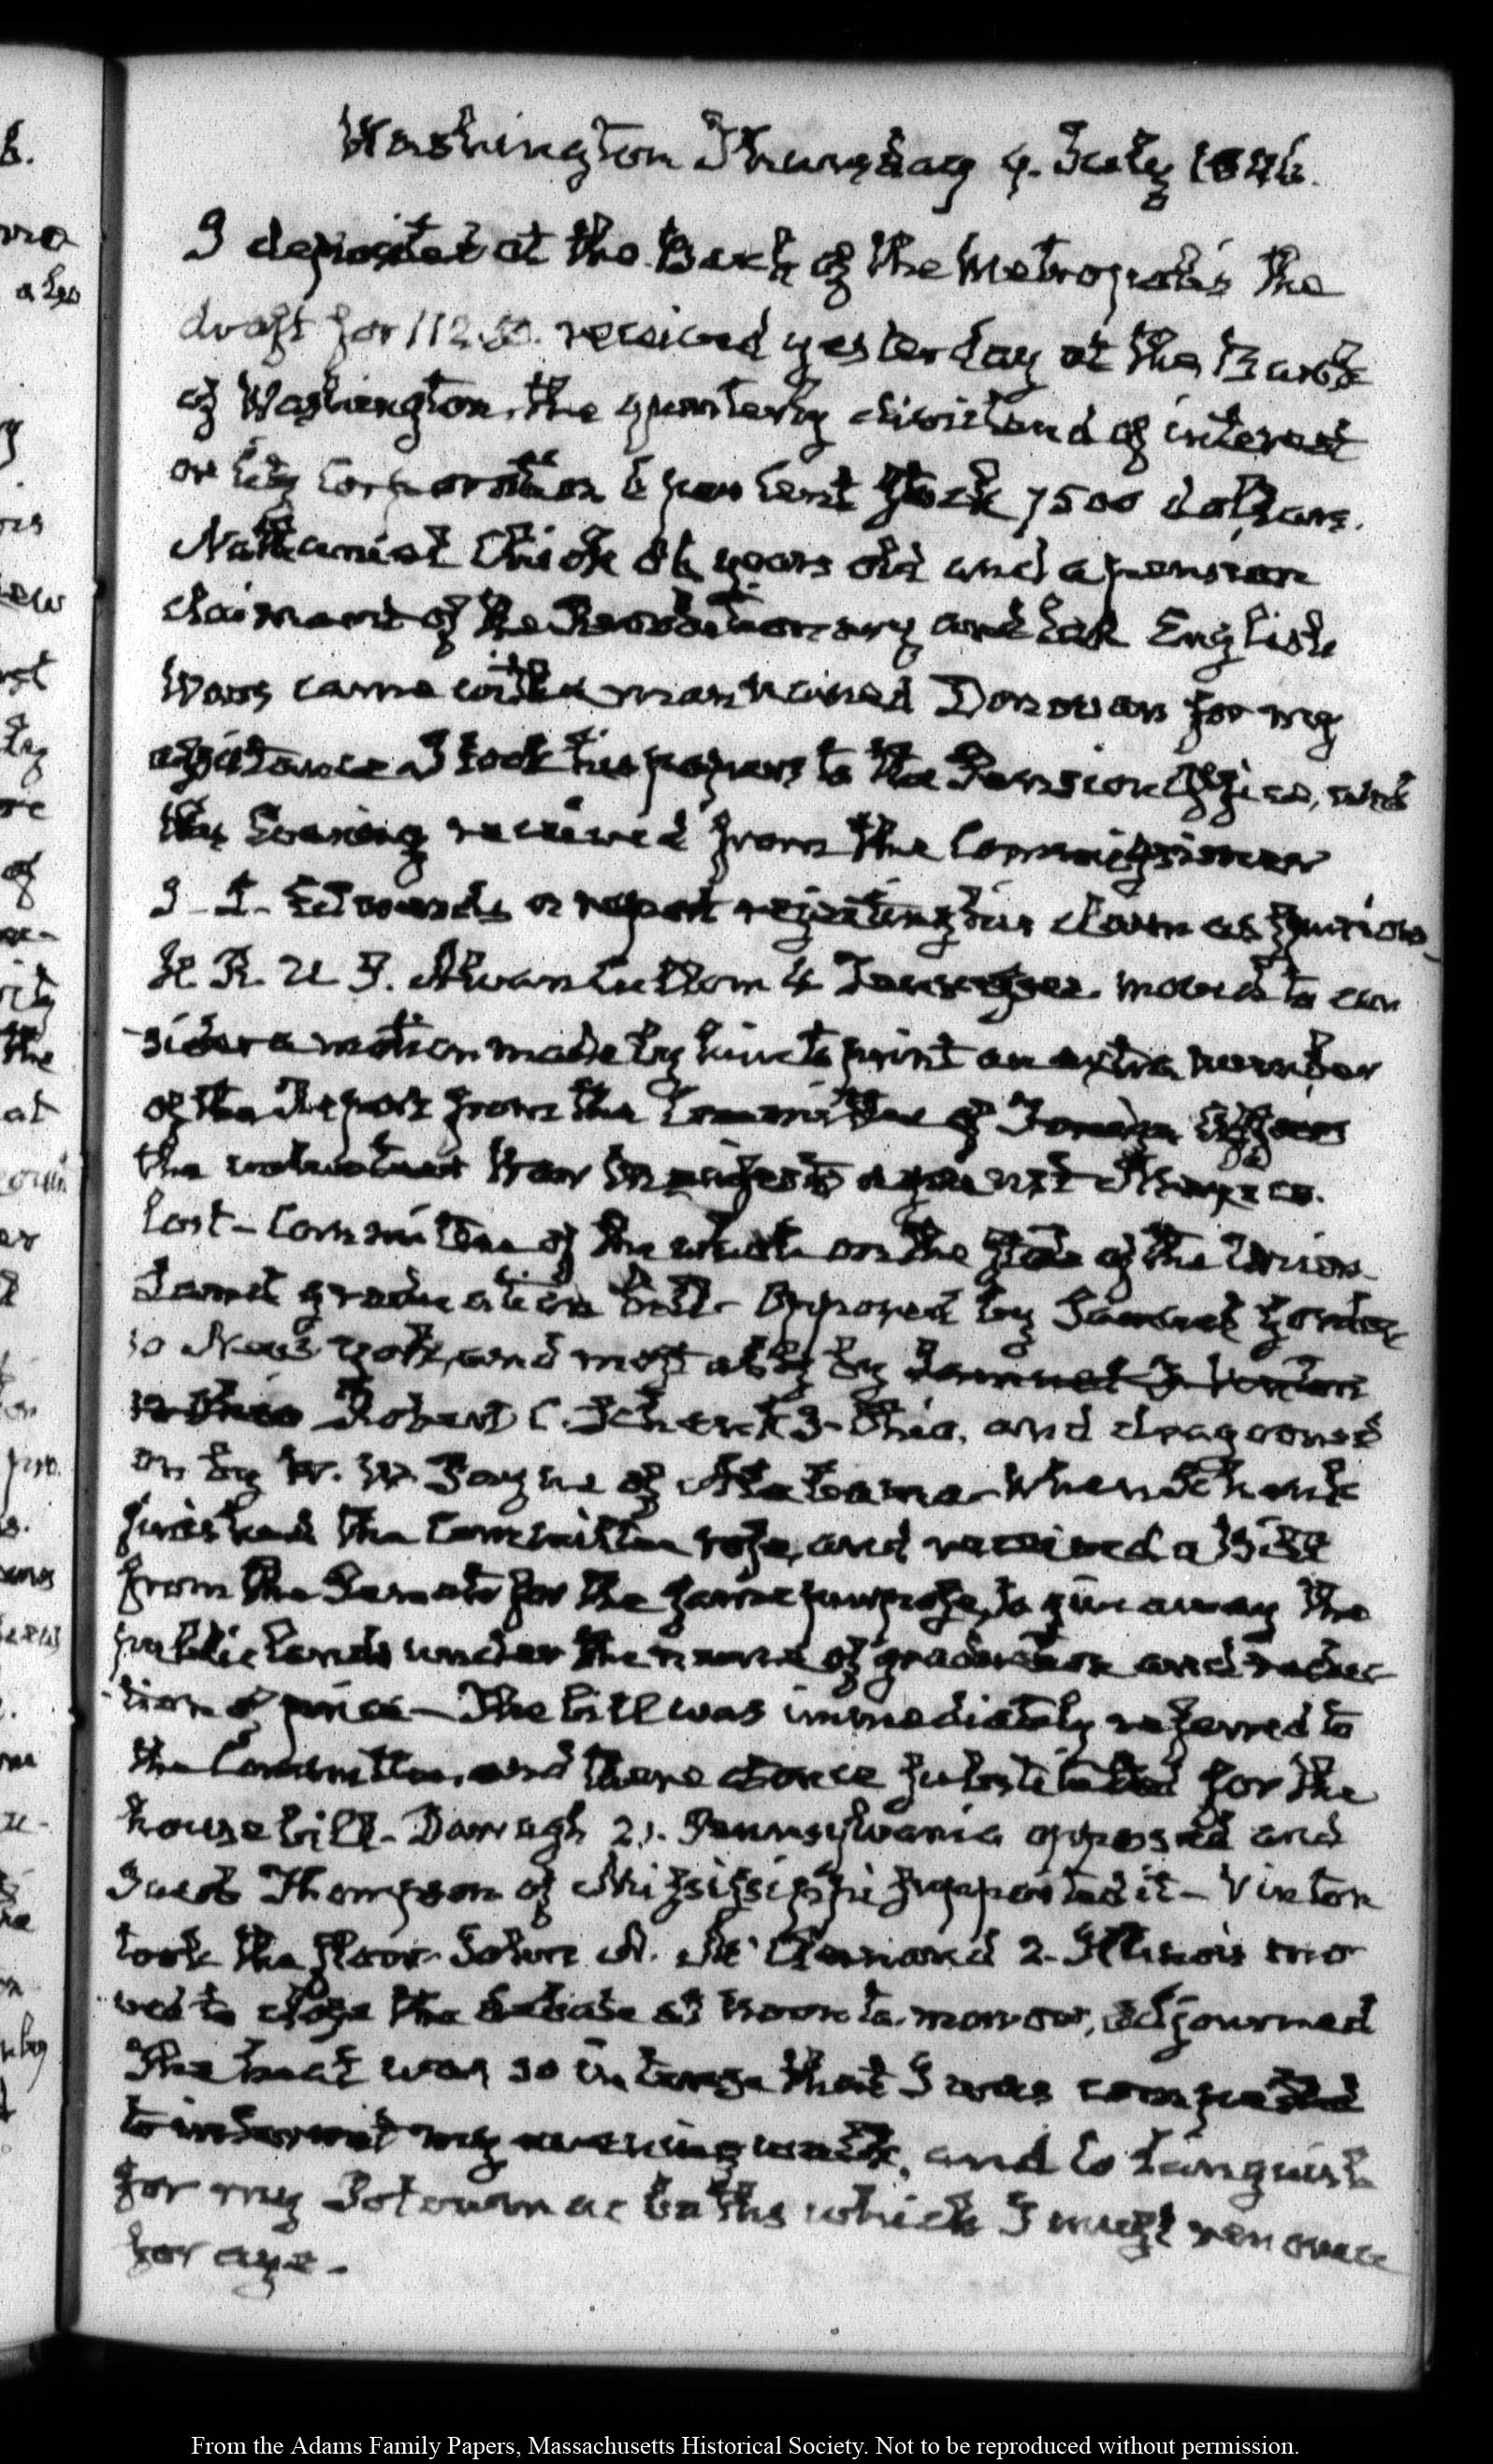 Washington Thursday 9. July 1846.
I deposited at the Bank of the Metropolis the
draft for 112.50. received yesterday at the Bank
of Washington, the quarterly dividend of interest
on City Corporation 6 per Cent Stock 7500 dollars.
Nathaniel Chick 86 years old and a pension
claimant of the Revolutionary and last English
Wars came with a man named Donovan for my
assistance I took his papers to the Pension Office, and
this Evening received from the Commissioner
J. L. Edwards a report rejecting his claim as spurious
H. R. U. S. Alvan Cullom 4 Tennessee moved to con
-sider a motion made by him to print an extra number
of the Report from the Committee of Foreign Affairs
the War Manifesto against Mexico.
lost – Committee of the whole on the State of the Union
Land graduation bill – Opposed by Samuel Gordon
10 New York, and most ably by Samuel F. Vinton
Robert C. Schenck 3– Ohio, and dragooned
on by W. W. Payne of Alabama – When Schenck
finished the Committee rose, and received a Bill
from the Senate for the same purpose, to give away the
public lands under the name of graduation and reduc
tion of price – The bill was immediately referred to
the Committee, and there at once substituted for the
house bill – Darragh 21. Pennsylvania opposed and
Jacob Thompson of Mississippi supported it – Vinton
took the floor John A. McClernand 2– Illinois mo
ved to close the debate at noon to-morrow, adjourned
The heat was so intense that I was compelled
to intermit my evening walk, and to languish
for my Potowmac baths which I must renounce
for aye –
From the Adams Family Papers, Massachusetts Historical Society. Not to be reproduced without permission.